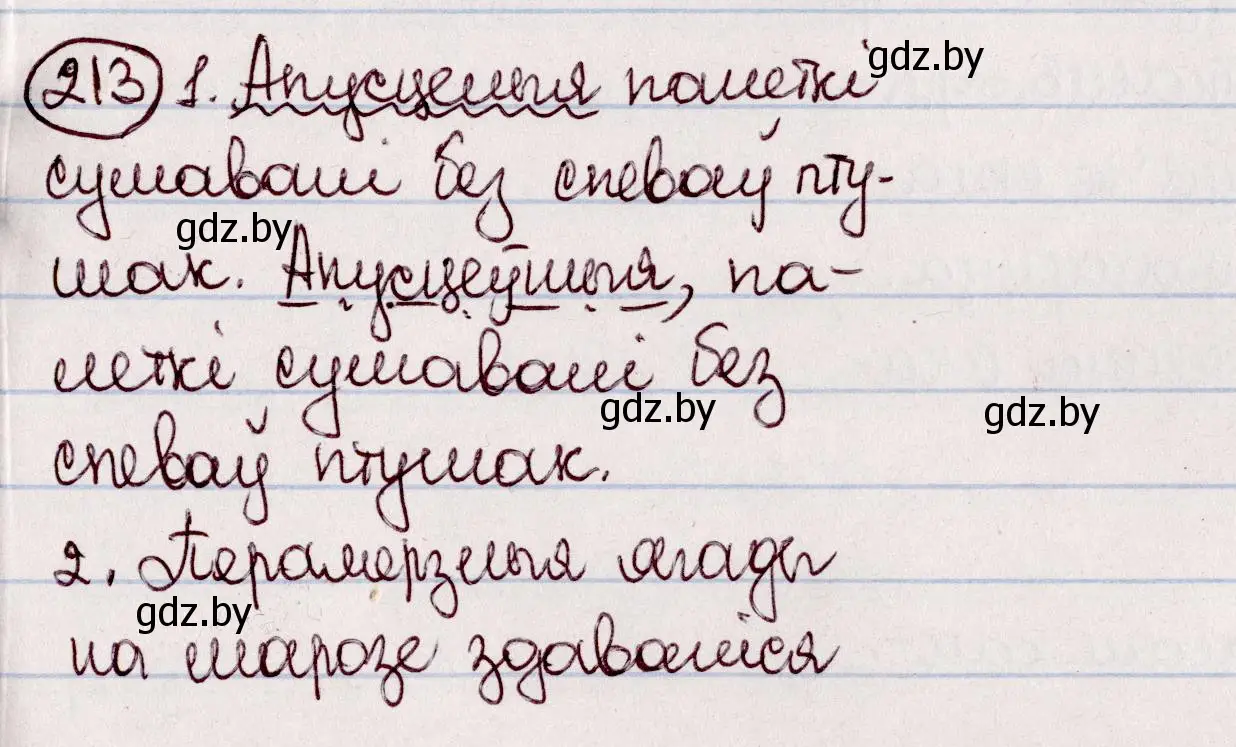 213 1. Апусцелыя палеткі
сумавалі без спеваў пту-
шак. Апусцеўшыя, па-
леткі сумавалі без
спеваў птушак.
2. Перамерзлыя ягады
на марозе здаваліся
gdz.by
gdz.by
gdz.by
gdz.by
gdz.by